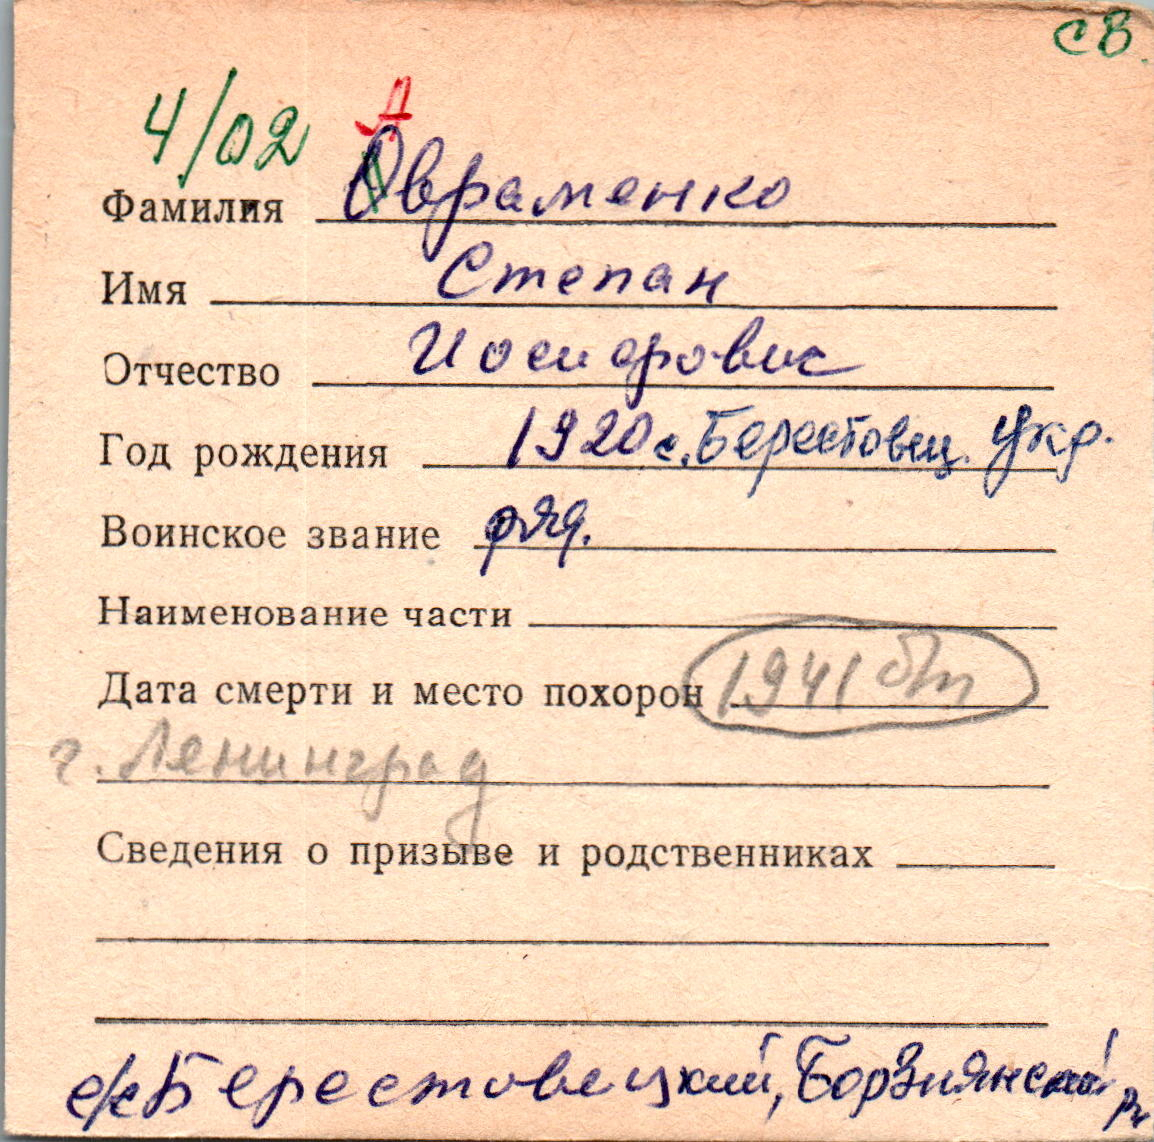 св.
4/02 А
Фамилия Овраменко
Имя Степан
Отчество Иосифович
Год рождения 1920 с. Берестовец. Укр.
Воинское звание ряд.
Наименование части
Дата смерти и место похорон 1941
г. Ленинград
Сведения о призыве и родственниках
Берестовецкий, Борзнянский